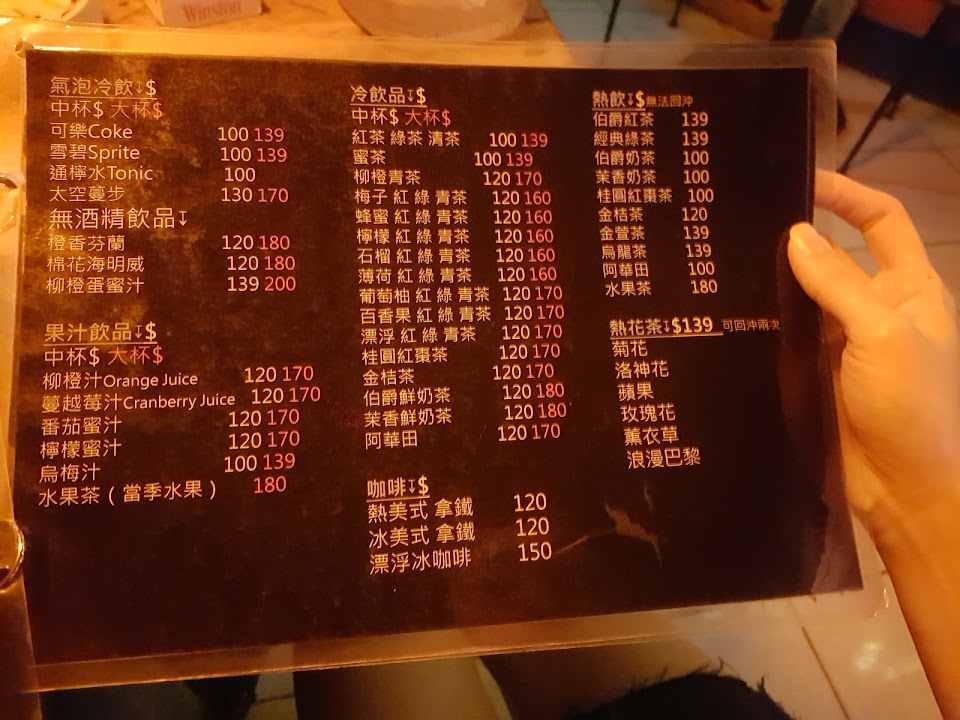 Winston
氣泡冷飲↧$
中杯$ 大杯$
可樂Coke 100 139
雪碧Sprite 100 139
通檸水Tonic 100
太空蔓步 130 170
無酒精飲品↧
橙香芬蘭 120 180
棉花海明威 120 180
柳橙蛋蜜汁 139 200
果汁飲品↧$
中杯$ 大杯$
柳橙汁Orange Juice 120 170
蔓越莓汁Cranberry Juice 120 170
番茄蜜汁 120 170
檸檬蜜汁 120 170
烏梅汁 100 139
水果茶（當季水果） 180
冷飲品↧$
中杯$ 大杯$
紅茶 綠茶 清茶 100 139
蜜茶 100 139
柳橙青茶 120 170
梅子 紅 綠 青茶 120 160
蜂蜜 紅 綠 青茶 120 160
檸檬 紅 綠 青茶 120 160
石榴 紅 綠 青茶 120 160
薄荷 紅 綠 青茶 120 160
葡萄柚 紅 綠 青茶 120 170
百香果 紅 綠 青茶 120 170
漂浮 紅 綠 青茶 120 170
桂圓紅棗茶 120 170
金桔茶 120 170
伯爵鮮奶茶 120 180
茉香鮮奶茶 120 180
阿華田 120 170
咖啡↧$
熱美式 拿鐵 120
冰美式 拿鐵 120
漂浮冰咖啡 150
熱飲↧$無法回沖
伯爵紅茶 139
經典綠茶 139
伯爵奶茶 100
茉香奶茶 100
桂圓紅棗茶 100
金桔茶 120
金萱茶 139
烏龍茶 139
阿華田 100
水果茶 180
熱花茶↧$139 可回沖兩次
菊花
洛神花
蘋果
玫瑰花
薰衣草
浪漫巴黎